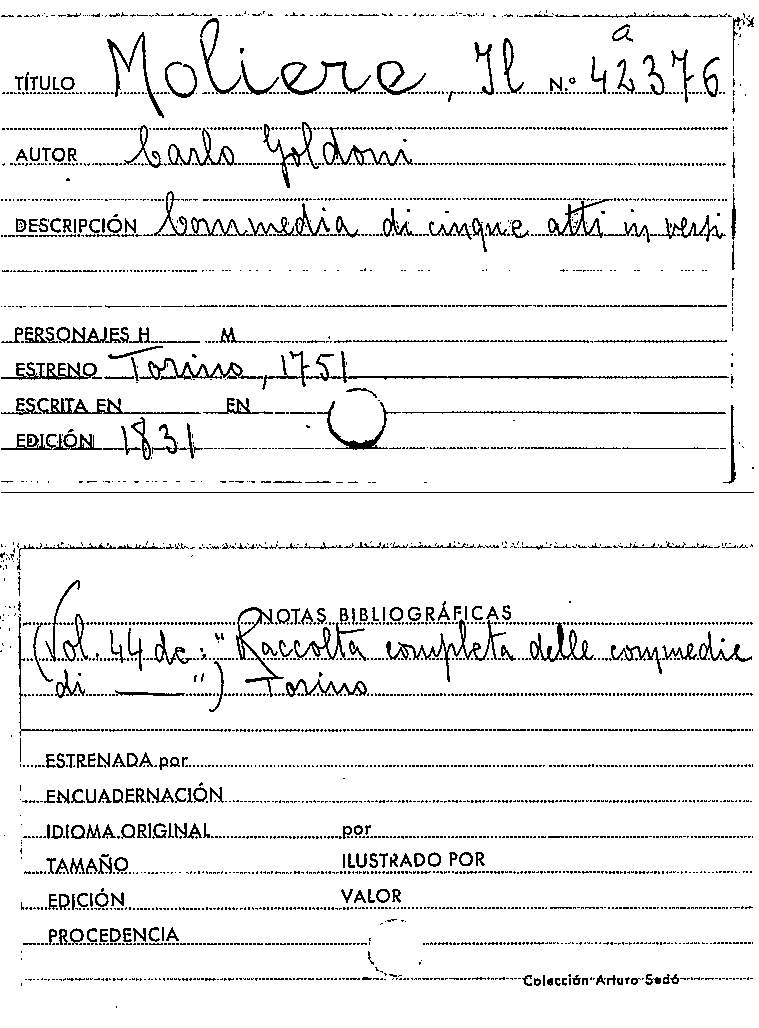 a
TÍTULO Moliere, Il N.º 42376
AUTOR Carlo Goldoni
DESCRIPCIÓN Commedia di cinque atti in versi
PERSONAJES H M
ESTRENO Torino, 1751
ESCRITA EN EN
EDICIÓN 1831
NOTAS BIBLIOGRÁFICAS
(Vol. 44 de: "Raccolta completa delle commedie
di ——— ") Torino
ESTRENADA por
ENCUADERNACIÓN
IDIOMA ORIGINAL por
TAMAÑO ILUSTRADO POR
EDICIÓN VALOR
PROCEDENCIA
Colección Arturo Sedó